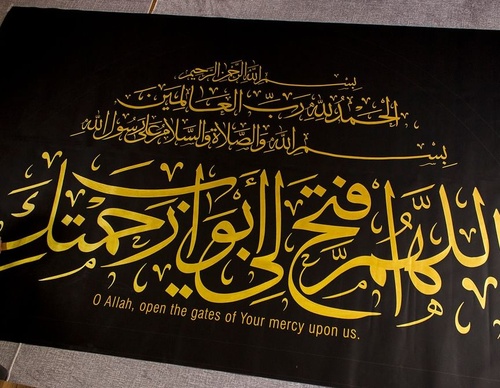 بسم الله الرحمن الرحيم
الحمد لله رب العالمين
بسم الله والصلاة والسلام على رسول الله
اللهم فتح لي أبواب رحمتك
O Allah, open the gates of Your mercy upon us.